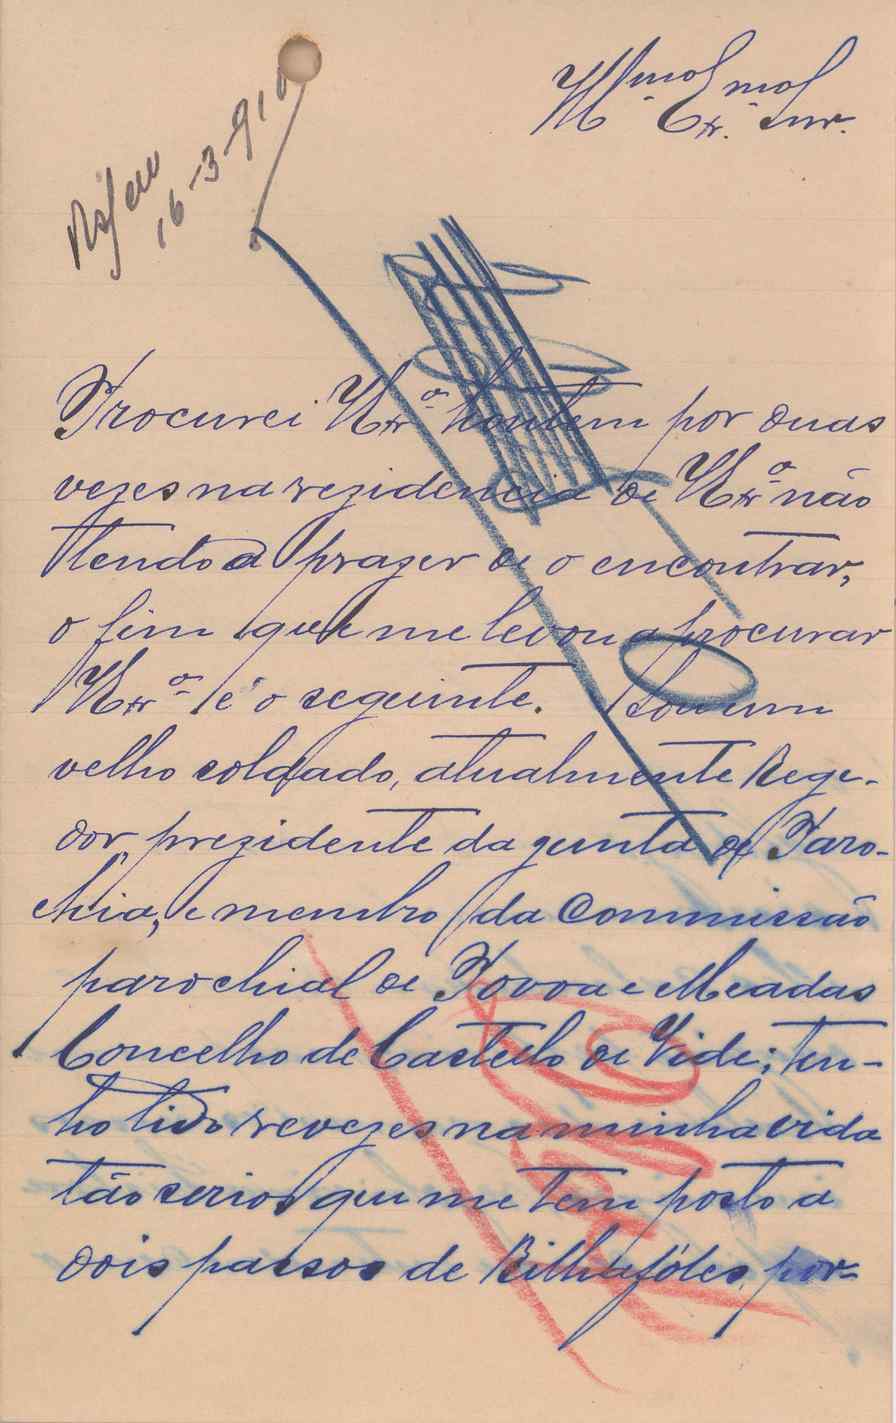 Illmo Exmo Snr.
16-3-910
Procurei V Exa hontem por duas
vezes na rezidencia de V Exa não
tendo o prazer de o encontrar,
o fim que me levou a procurar
V Exa é o seguinte. Sou um
velho soldado, atualmente Rege-
dor, prezidente da junta de Paro-
chia, e membro da Commissão
parochial de Povoa e Meadas
Concelho de Castello de Vide; ten-
ho tido revezes na minha vida
tão serios que me tem posto a
dois passos de Rilhafóles, por-